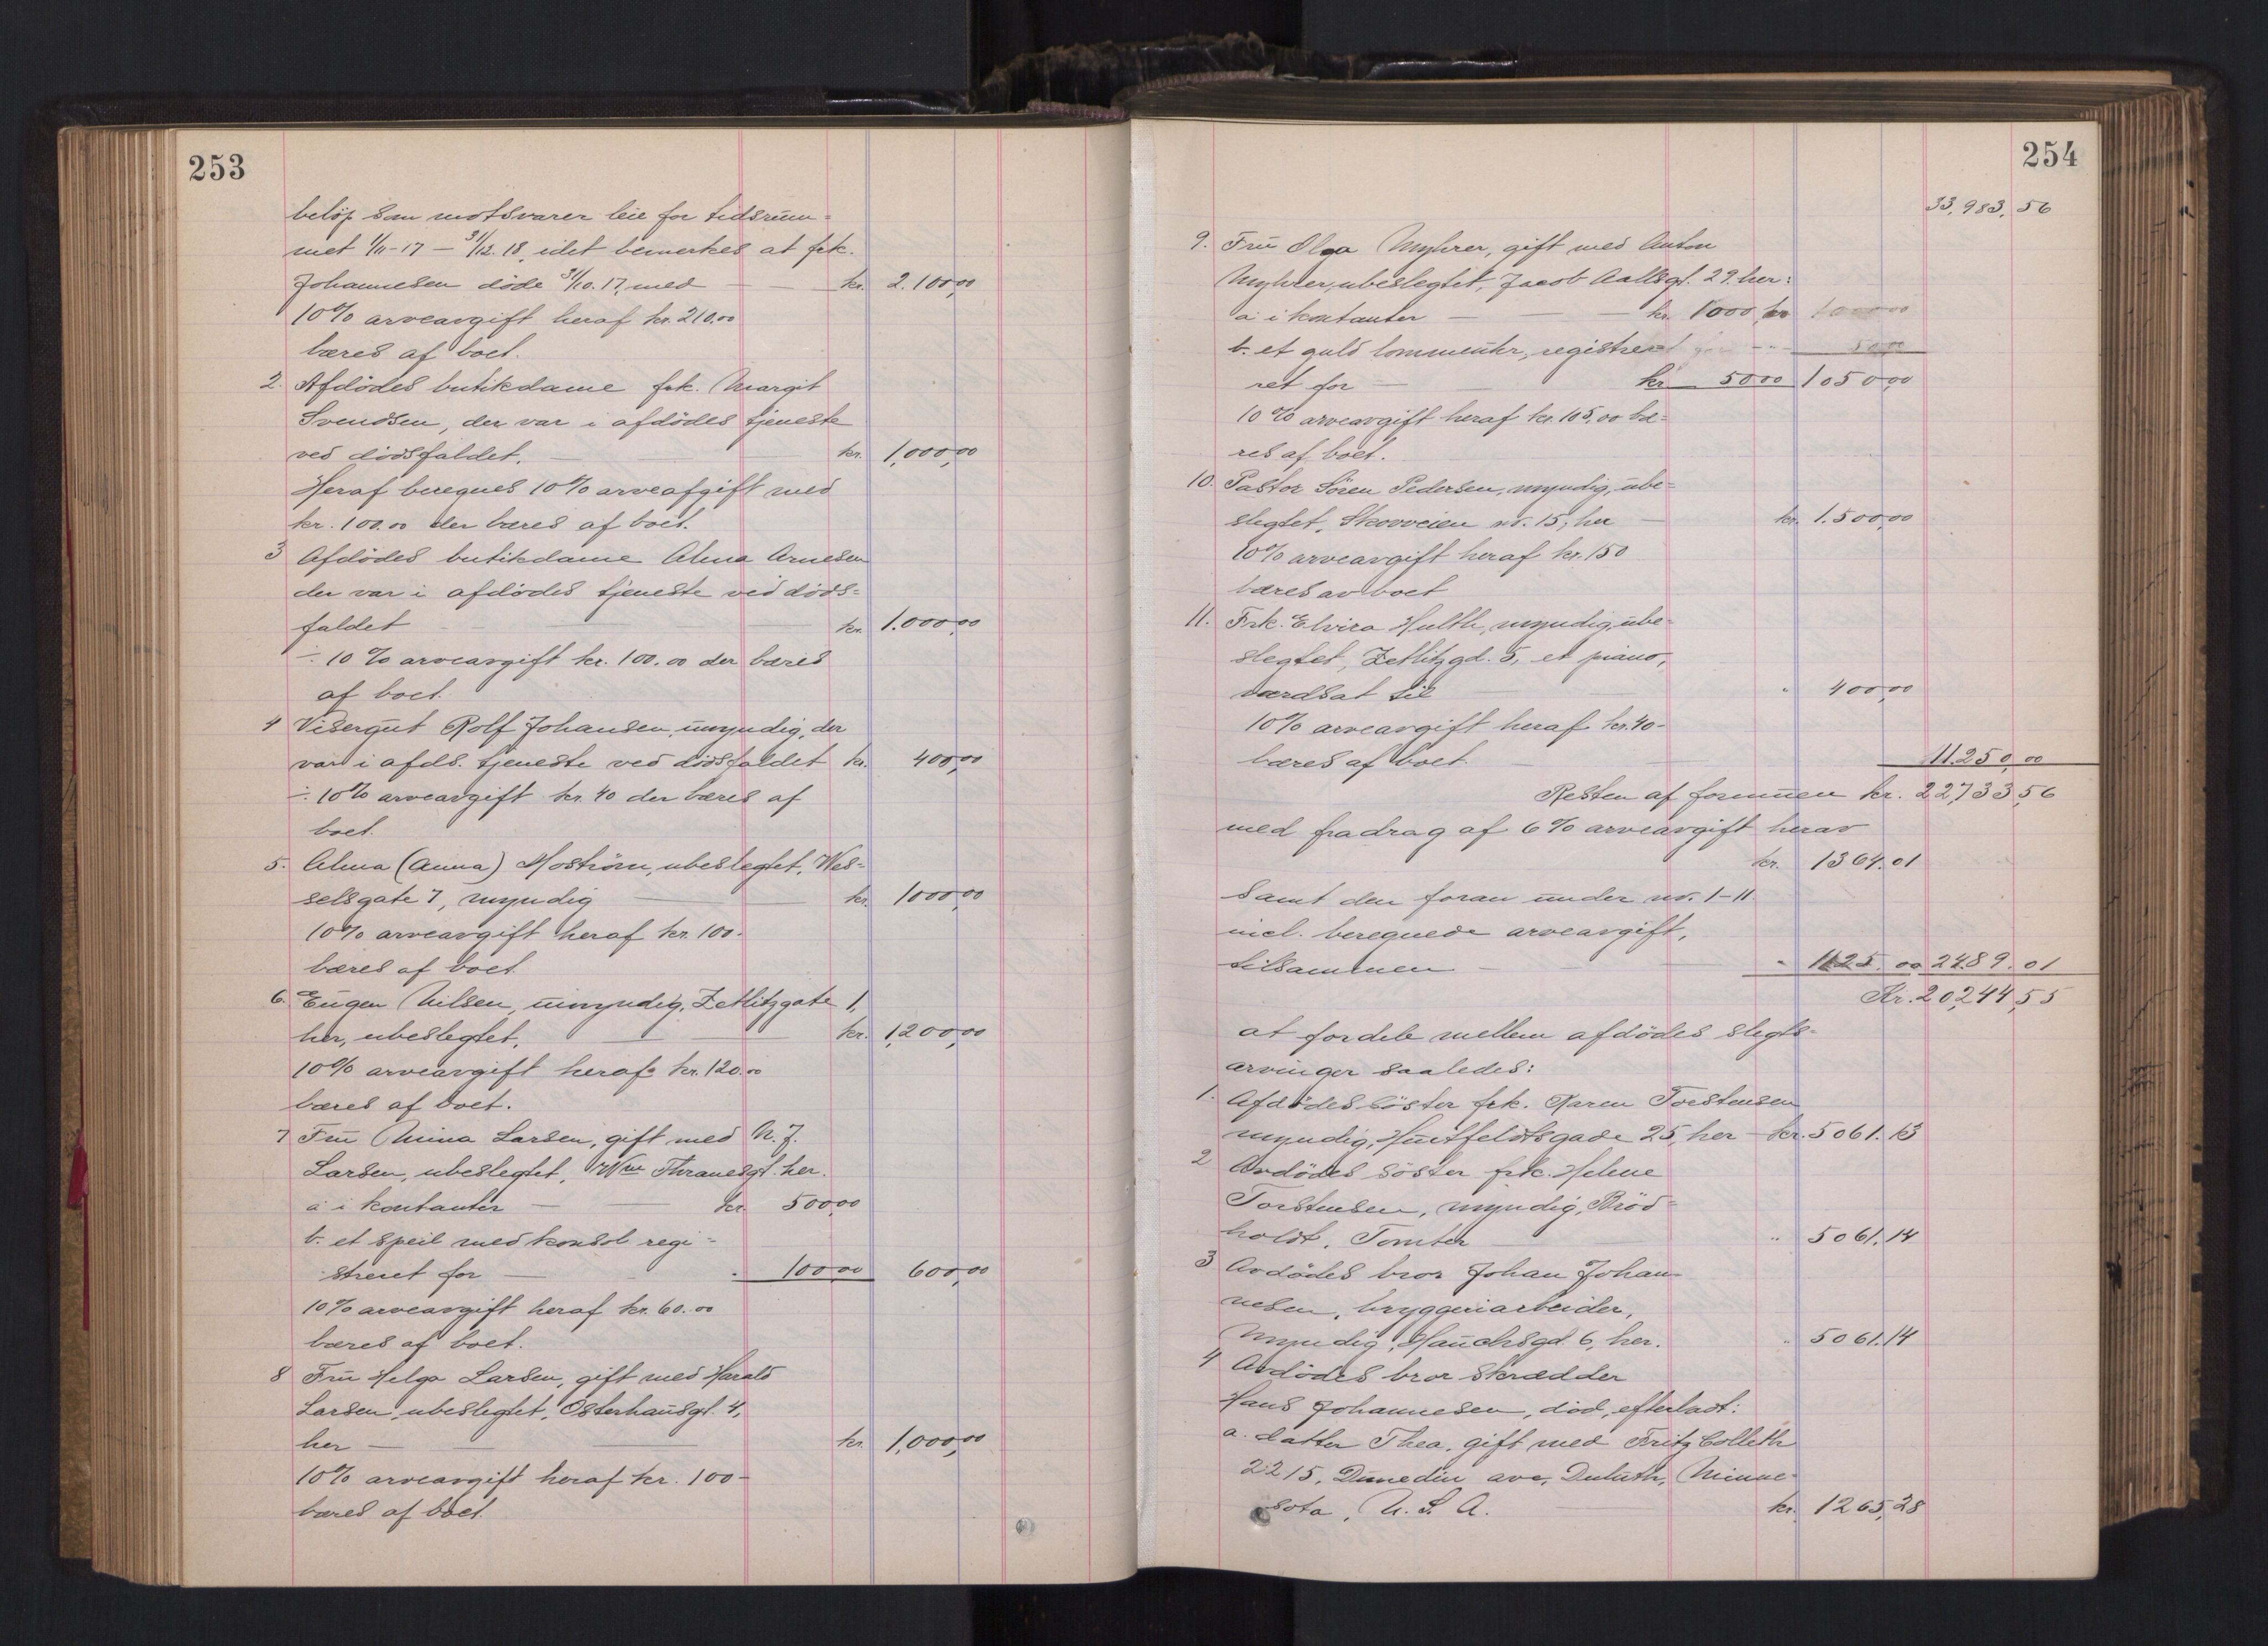 253
belöp som motsvarer leie for tidsrum-
met 1/11-17 — 31/12.18, idet bemerkes at frk.
Johannesen döde 31/10.17, med — — kr. 2.100,00
10% arveavgift heraf kr. 210.00
bæres af boet.
2. Afdödes butikdame frk. Margit
Svendsen, der var i afdödes tjeneste
ved dödsfaldet. — kr. 1,000,00
Heraf beregnes 10% arveafgift med
kr. 100.00 der bæres af boet.
3 Afdödes butikdame Alma Arnesen
der var i afdödes tjeneste ved döds-
faldet — kr. 1.000,00
÷ 10% arveavgift kr. 100.00 der bæres
af boet.
4 Visergut Rolf Johansen, umyndig, der
var i afds. tjeneste ved dödsfaldet kr. 400,00
÷ 10% arveavgift kr. 40 der bæres af
boet.
5. Alma (Anna) Moström, ubeslegtet, Wes-
selsgate 7, myndig — kr. 1000,00
10% arveavgift heraf kr. 100.-
bæres af boet.
6. Eugen Nilsen, umyndig, Zetlitzgate 1,
her, ubeslegtet. — kr. 1,200,00
10% arveavgift heraf kr. 120.00
bæres af boet.
7 Fru Mina Larsen, gift med N. J.
Larsen, ubeslegtet, Thranesgt. her.
a. i kontanter — kr. 500,00
b. et speil med konsol regi-
streret for — " 100,00 600,00
10% arveavgift heraf kr. 60.00
bæres af boet.
8 Fru Helga Larsen, gift med Harald
Larsen, ubeslegtet, Osterhausgt. 4,
her — kr. 1,000,00
10% arveavgift heraf kr. 100-
bæres af boet.
254
33,983,56
9. Fru Olga Myhrer, gift med Anton
Myhrer, ubeslegtet, Jacob Aallsgt. 29. her:
a. i kontanter — kr. 1000,00
b. et guld lommeuhr, regist
ret for — kr. 50.00 1050,00
10% arveavgift heraf kr. 105,00 bæ-
res af boet.
10. Pastor Sören Pedersen, myndig, ube-
slegtet, Skovveien nr. 15, her — kr. 1.500,00
10% arveavgift heraf kr. 150
bæres av boet
11. Frk. Elvira Hulth, myndig, ube-
slegtet, Zetlitzgd. 5, et piano,
værdsat til — " 400,00
10% arveavgift heraf kr. 40-
bæres af boet. — 11.250,00
Resten af formuen kr. 22,733,56
med fradrag af 6% arveavgift herav
kr. 1364.01
samt den foran under nr. 1-11
incl. beregnede arveavgift,
tilsammen — " 1125.00 2489.01
Kr. 20,244,55
at fordele mellem afdödes slegts-
arvinger saaledes:
1. Afdödes söster frk. Karen Torstensen
myndig, Huitfeldtsgade 25, her — kr. 5061.13
2 Avdödes söster frk. Helene
Torstensen, myndig, Bröd-
holdt, Tomter — " 5061.14
3 Avdödes bror Johan Johan-
nesen, bryggeriarbeider,
myndig, Hauchsgd. 6, her. " 5061.14
4 Avdödes bror skrædder
Hans Johannesen, död, efterladt:
a. datter Thea, gift med Fritz Colleth
2215, Dunedin ave, Duluth, Minne-
sota, U. S. A. — kr. 1265,28